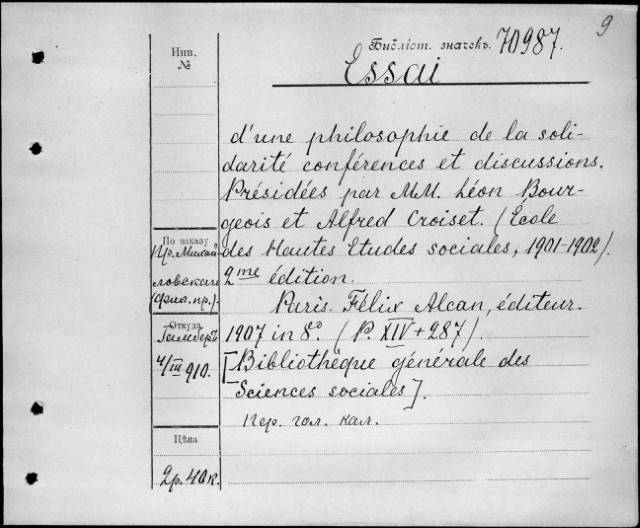 9
Библіот. значекъ. 70987.
Инв.
№
Essai
d'une philosophie de la soli-
darité conférences et discussions.
Présidées par MM. Léon Bour-
geois et Alfred Croiset. (École
des Hautes Etudes sociales, 1901-1902).
2me édition.
Paris. Félix Alcan, éditeur.
1907 in 8º. (P. XIV + 287).
[Bibliothèque générale des
Sciences sociales].
пер. гол. кал.
По заказу
Пр. Михай
ловскаго
(Фил. пр.)
Откуда
4/III 910.
Цѣна
2р. 40к.